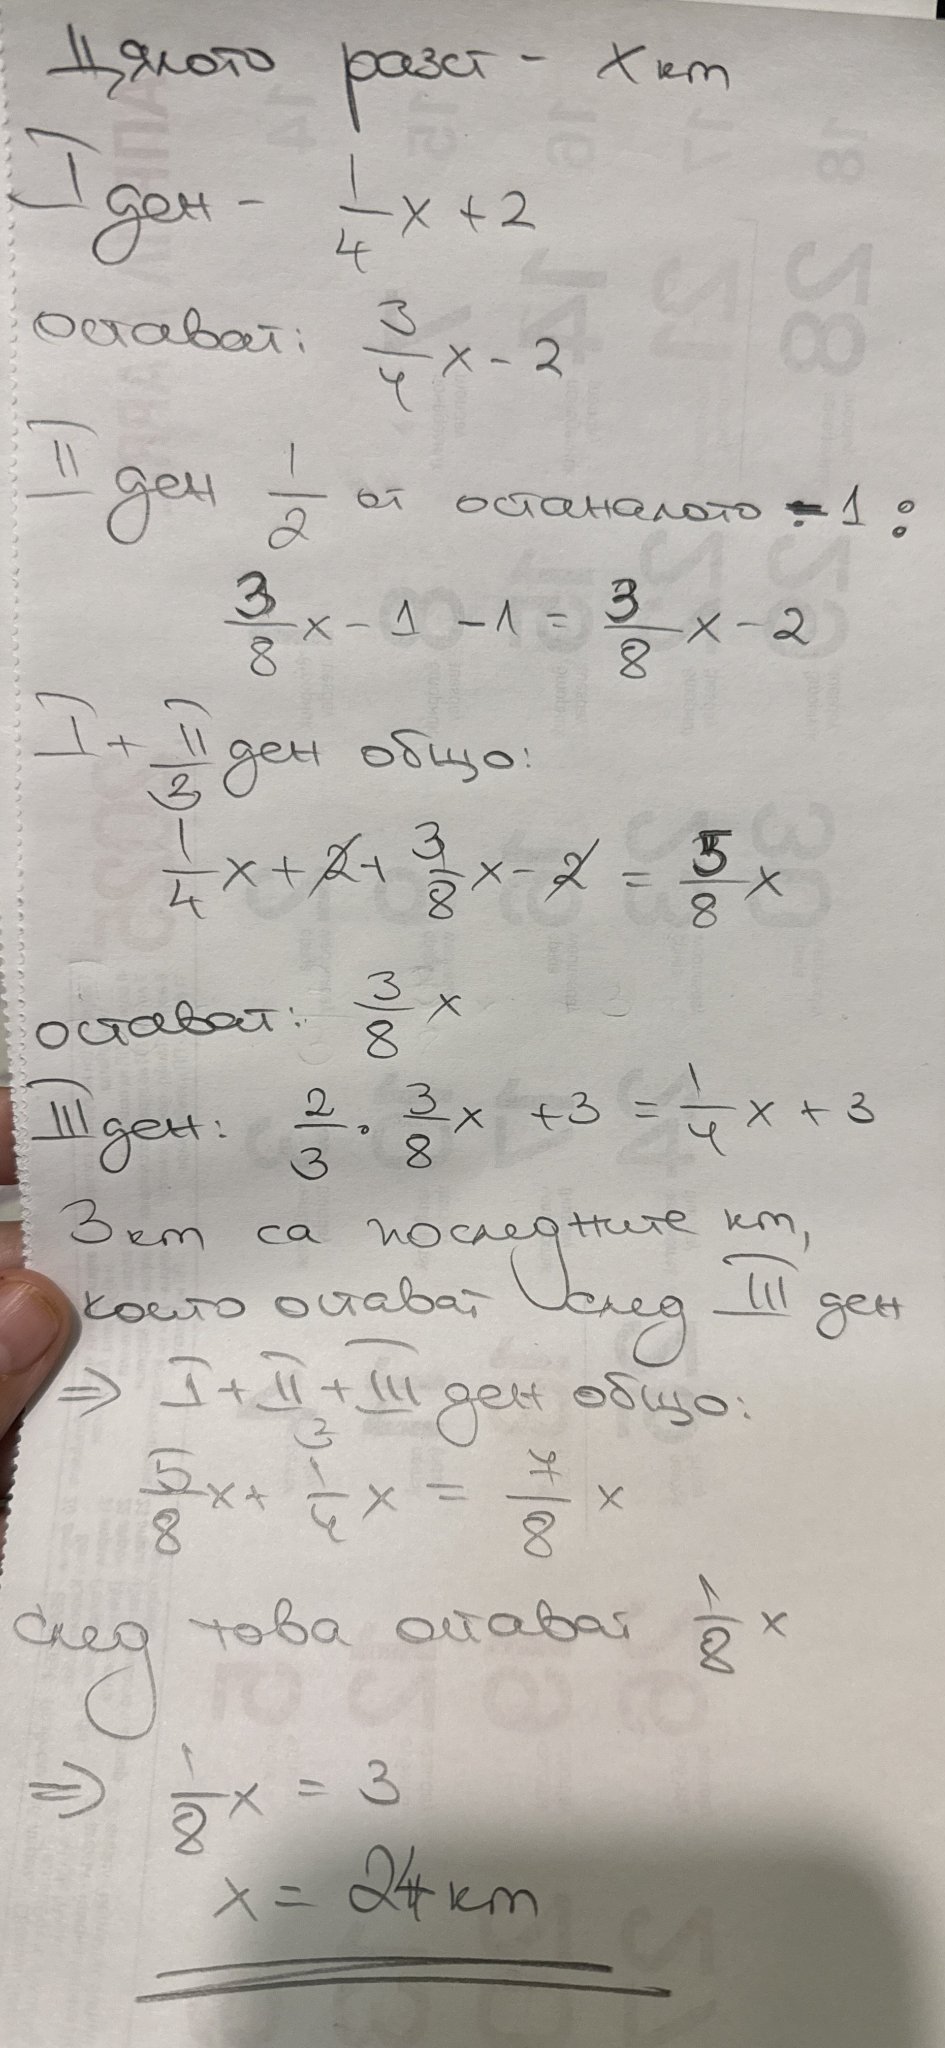 Цялото разст - x km
I ден - 1/4 x + 2
остават: 3/4 x - 2
II ден 1/2 от останалото - 1:
3/8 x - 1 - 1 = 3/8 x - 2
I + II ден общо:
1/4 x + 2 + 3/8 x - 2 = 5/8 x
остават: 3/8 x
III ден: 2/3 . 3/8 x + 3 = 1/4 x + 3
3 km са последните km,
които остават след III ден
=> I + II + III ден общо:
5/8 x + 1/4 x = 7/8 x
след това остават 1/8 x
=> 1/8 x = 3
x = 24 km